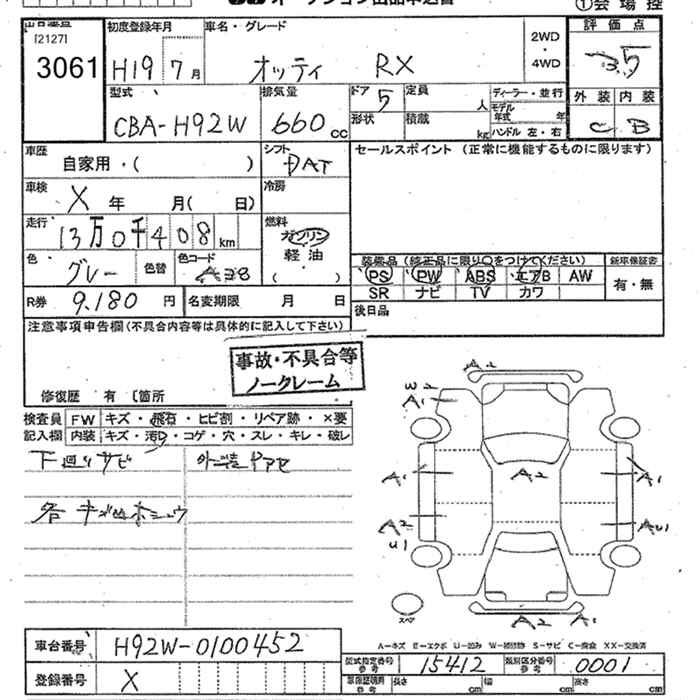 オークション出品申込書 ①会場控
出品番号 初度登録年月 車名・グレード 2WD・4WD 評価点
[2127]
3061 H19 7月 オッティ RX 3.5
型式 排気量 ドア 5 定員 人 ディーラー・並行 外装 内装
CBA-H92W 660cc 形状 積載 kg モデル年式 年 ハンドル 左・右 C B
車歴 シフト セールスポイント (正常に機能するものに限ります)
自家用・( ) DAT
車検 冷房
X 年 月( 日)
走行 燃料
13万0千408km ガソリン
軽油
色 グレー 色替 色コード ( ) 装備品 (純正品に限り○をつけてください) 新車保証書
PS PW ABS エアB AW 有・無
R券 9,180円 名変期限 月 日 SR ナビ TV カワ
後日品
注意事項申告欄 (不具合内容等は具体的に記入して下さい)
事故・不具合等
ノークレーム
修復歴 有 [箇所
検査員 FW キズ・飛石・ヒビ割・リペア跡・×要
記入欄 内装 キズ・汚れ・コゲ・穴・スレ・キレ・破レ
下廻りサビ 外装ヤケ
各キズ凹ホシュウ
A2
W2
A1
A1 A2 A1
A2 AU1
U1
スペア A2 A1
車台番号 H92W-0100452
A-キズ E-エクボ U-凹み W-補修跡 S-サビ C-腐食 XX-交換済
型式指定番号 参考 15412 類別区分番号 参考 0001
登録番号 X
車庫証明用 参考 長さ cm 幅 cm 高さ cm